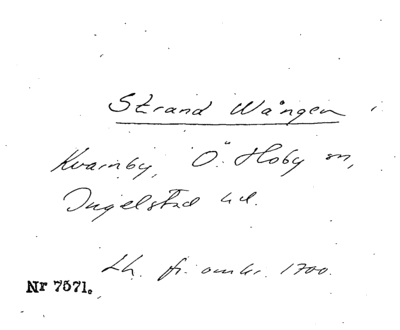 Strand Wången
Kvarnby, Ö. Hoby sn,
Ingelstad hd.
Lh. fr. omkr. 1700.
Nr 7571.